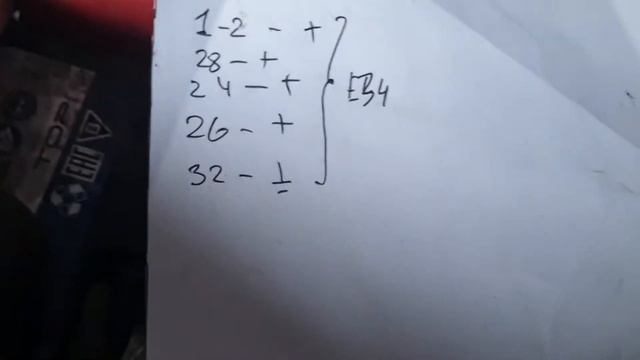 1-2 - +
28 - +
24 - +
26 - +
32 - ⏚
EB4
TOPL
EAC